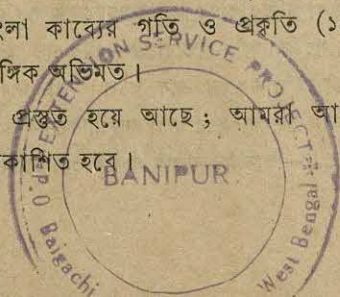 ংলা কাব্যের গতি ও প্রকৃতি (১
ঙ্গিক অভিমত।
প্রস্তুত হয়ে আছে; আমরা আ
কাশিত হবে।
EXTENSION SERVICE PROJECT
BANIPUR
P.O. Baigachi
West Bengal